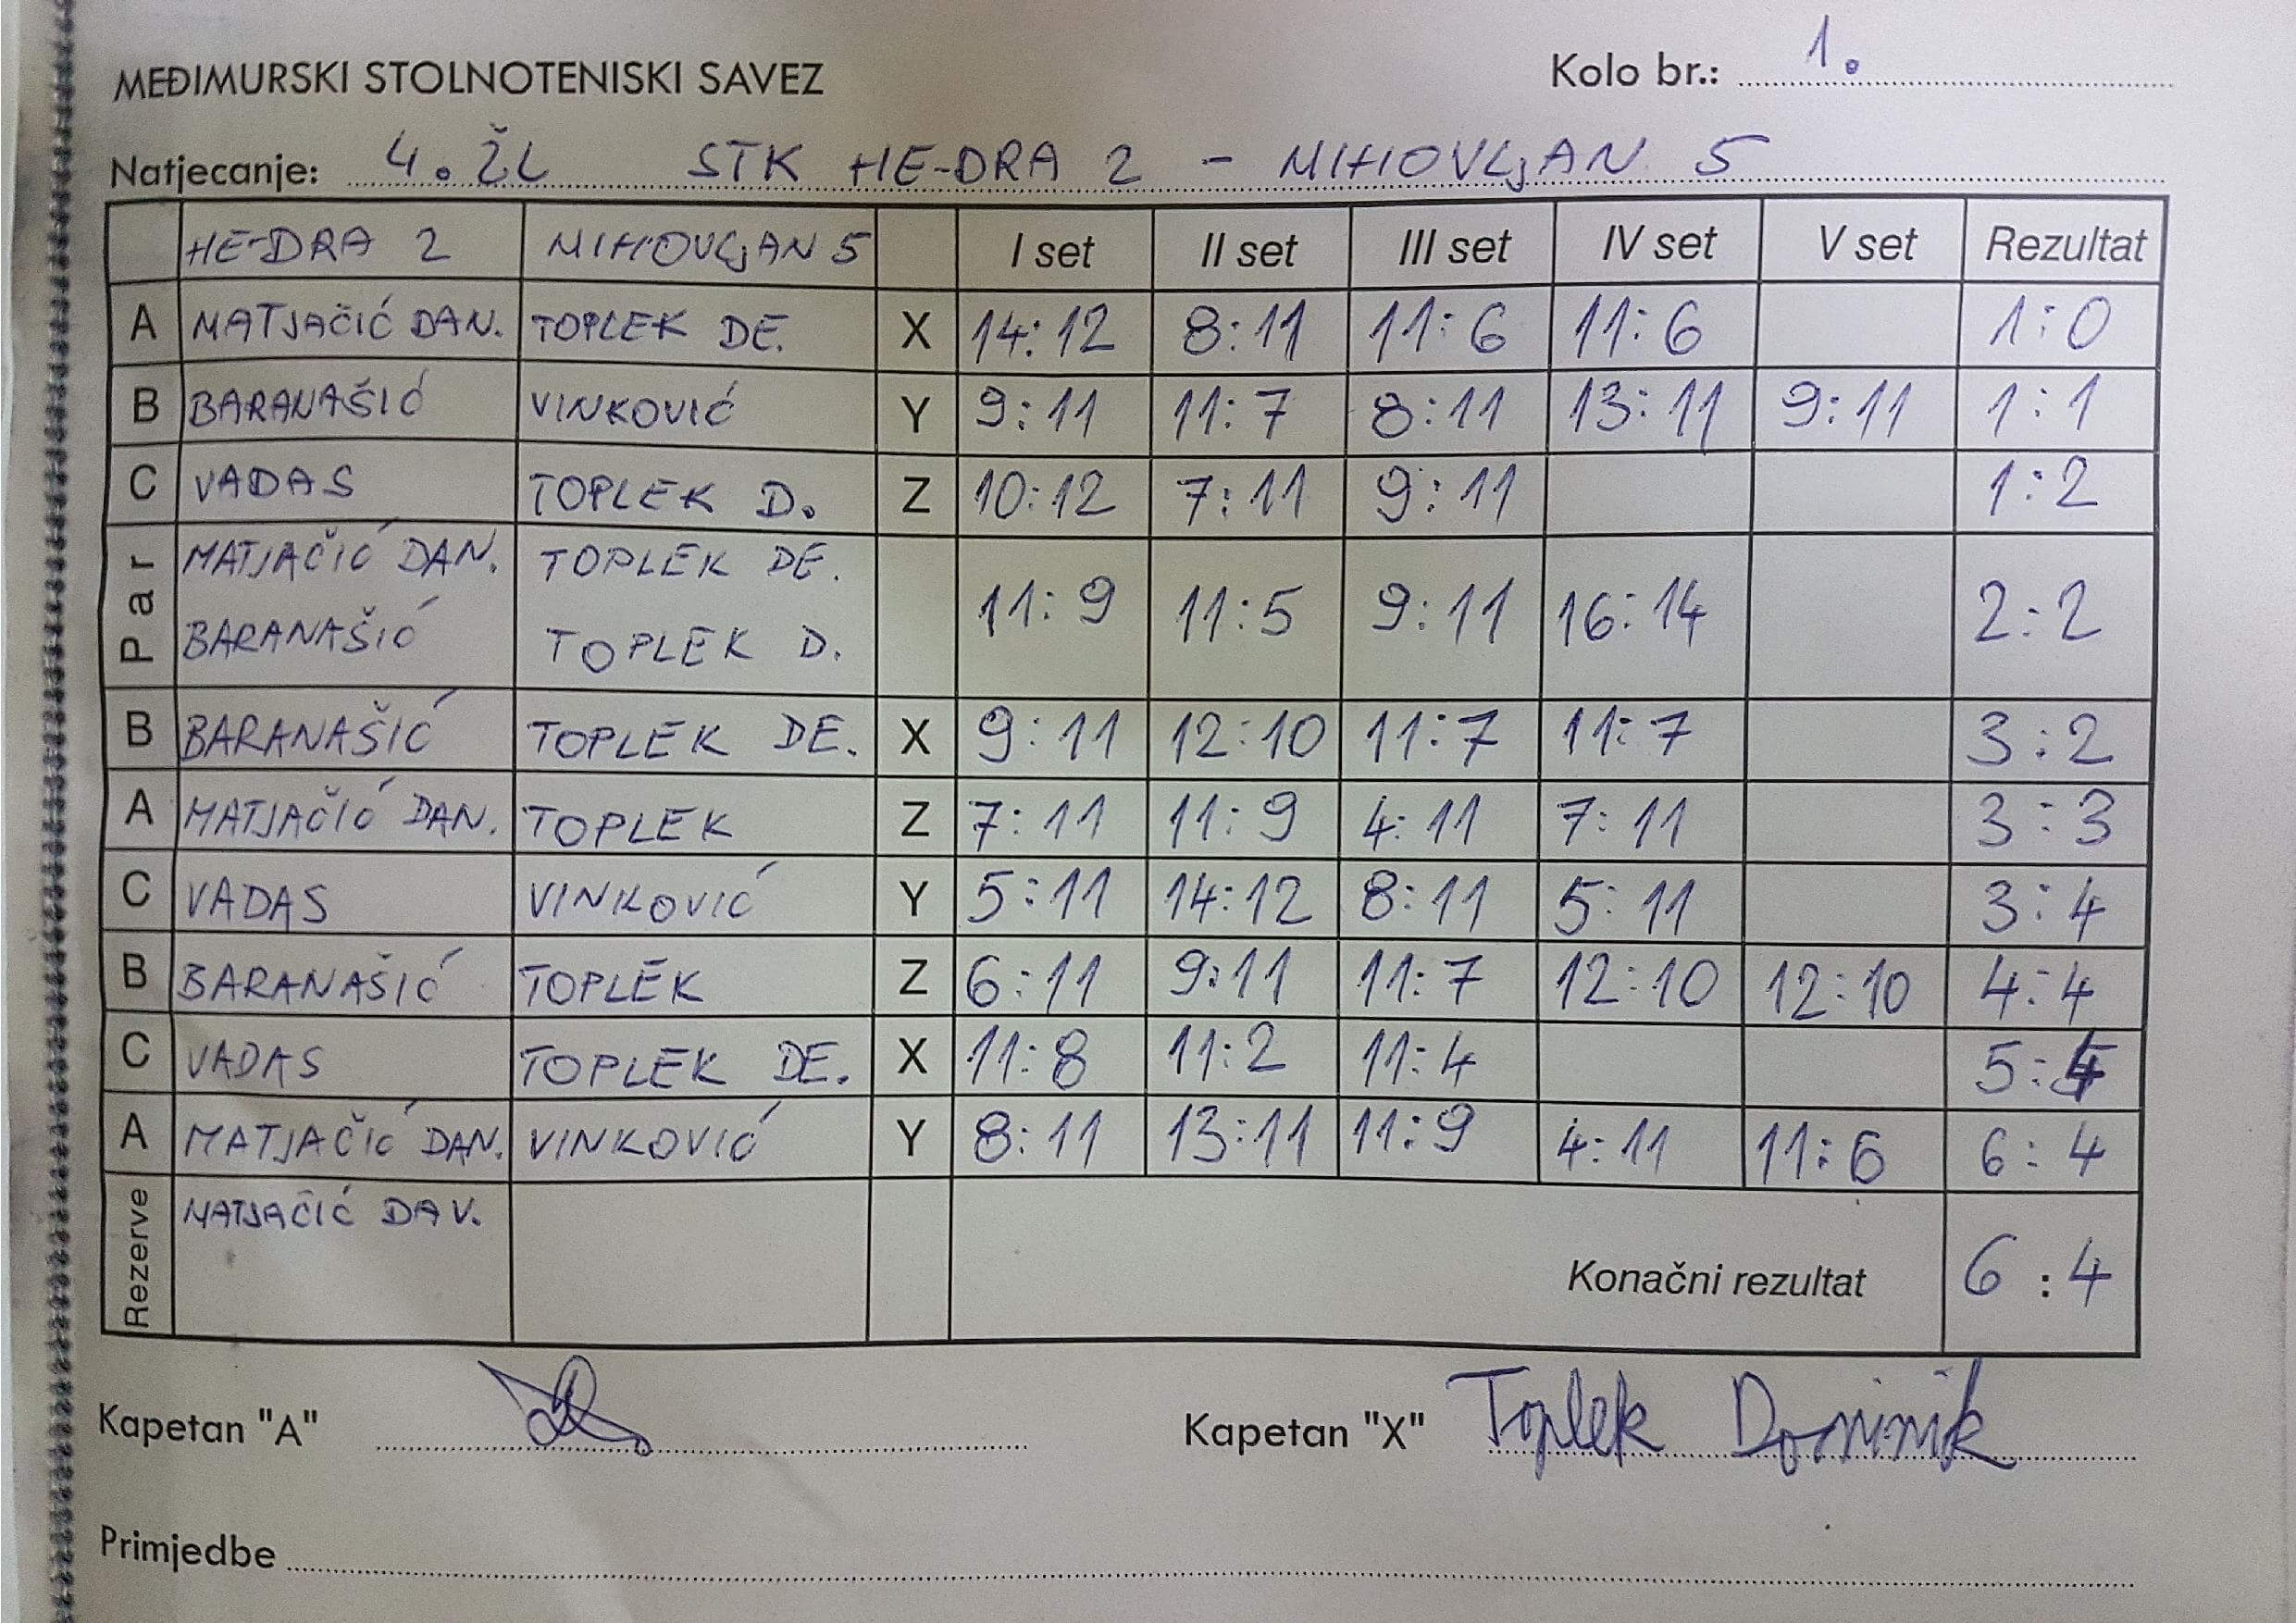 MEĐIMURSKI STOLNOTENISKI SAVEZ Kolo br.: 1.
Natjecanje: 4. ŽL STK HE-DRA 2 - MIHOVLJAN 5
HE-DRA 2 MIHOVLJAN 5 I set II set III set IV set V set Rezultat
A MATJAČIĆ DAN. TOPLEK DE. X 14:12 8:11 11:6 11:6 1:0
B BARANAŠIĆ VINKOVIĆ Y 9:11 11:7 8:11 13:11 9:11 1:1
C VADAS TOPLEK D. Z 10:12 7:11 9:11 1:2
Par MATJAČIĆ DAN. TOPLEK DE. 11:9 11:5 9:11 16:14 2:2
BARANAŠIĆ TOPLEK D.
B BARANAŠIĆ TOPLEK DE. X 9:11 12:10 11:7 11:7 3:2
A MATJAČIĆ DAN. TOPLEK Z 7:11 11:9 4:11 7:11 3:3
C VADAS VINKOVIĆ Y 5:11 14:12 8:11 5:11 3:4
B BARANAŠIĆ TOPLEK Z 6:11 9:11 11:7 12:10 12:10 4:4
C VADAS TOPLEK DE. X 11:8 11:2 11:4 5:4
A MATJAČIĆ DAN. VINKOVIĆ Y 8:11 13:11 11:9 4:11 11:6 6:4
Rezerve MATJAČIĆ DAV.
Konačni rezultat 6:4
Kapetan "A" Kapetan "X" Toplek Dominik
Primjedbe